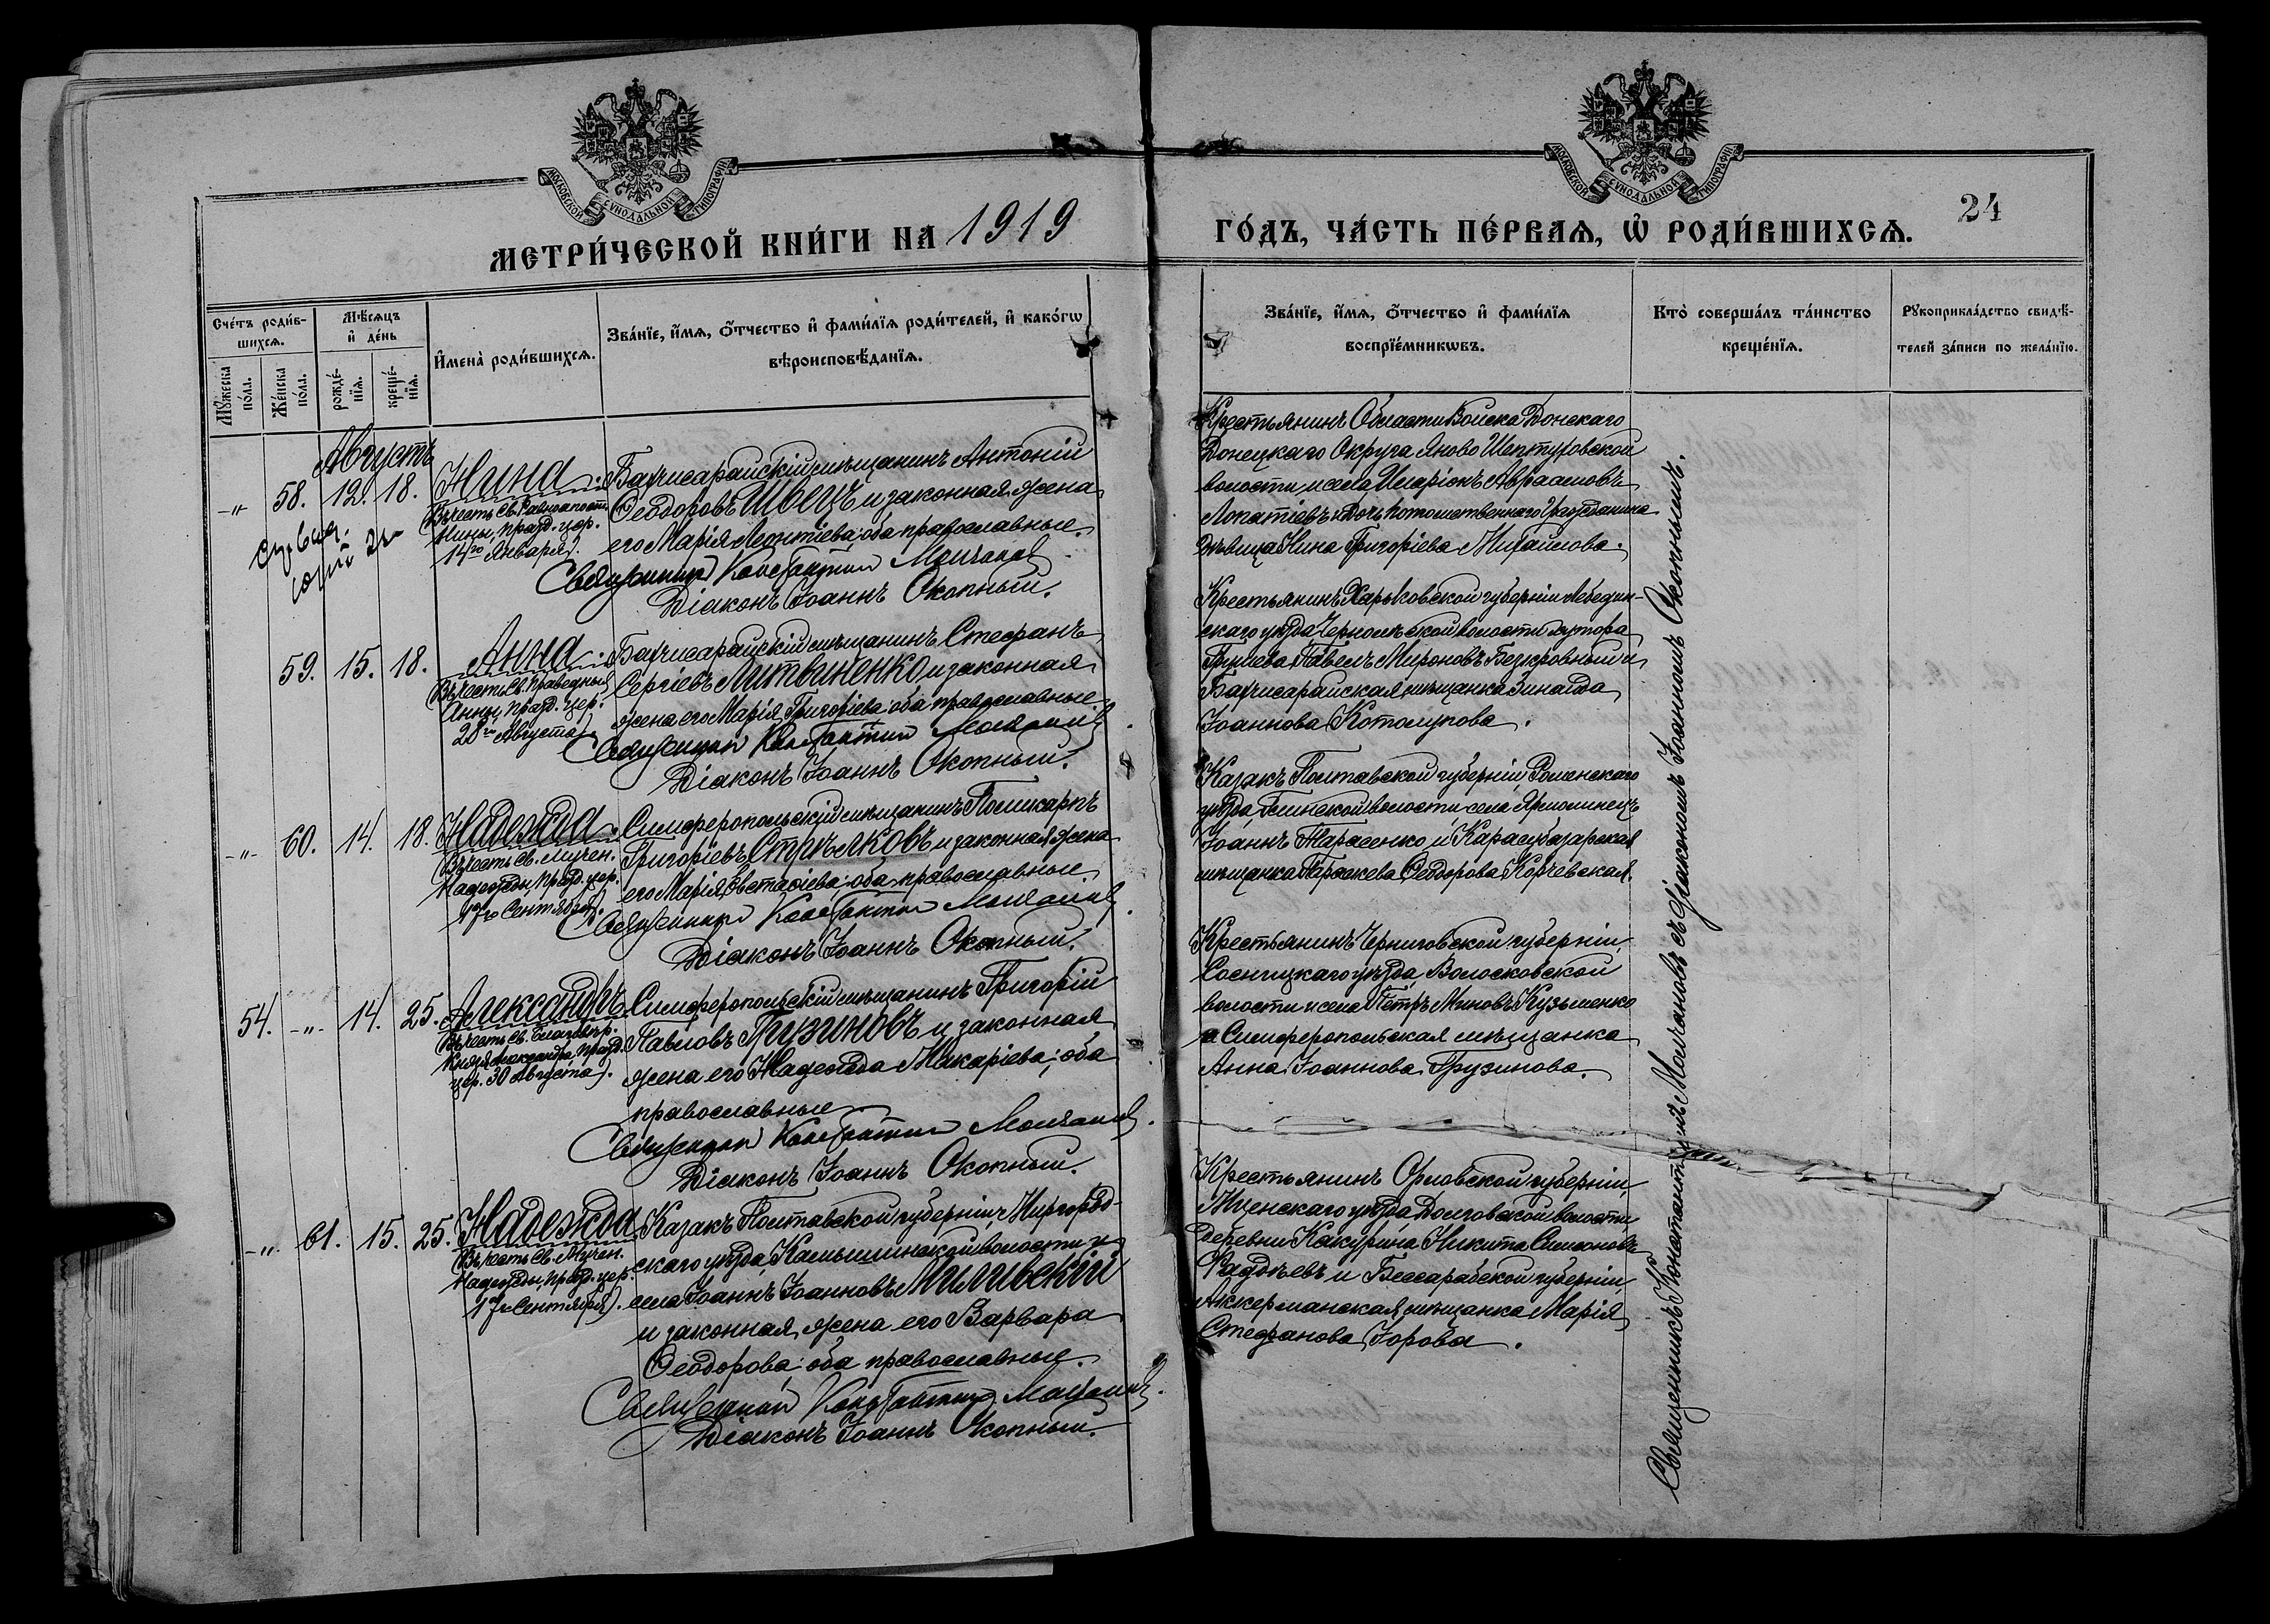 МОСКОВСКОЙ СѴНОДАЛЬНОЙ ТИПОГРАФІИ
МОСКОВСКОЙ СѴНОДАЛЬНОЙ ТИПОГРАФІИ
МЕТРИ́ЧЕСКОЙ КНИ́ГИ НА 1919
ГО́ДЪ, ЧА́СТЬ ПЕ́РВАѦ, Ѡ҆ РОДИ́ВШИХСѦ.
24
Сче́тъ роди́в-
шихсѧ.
Мꙋ́жеска по́ла.
Же́нска по́ла.
Мѣ́сѧцъ
и҆ де́нь
рожде́-
нїѧ.
креще́-
нїѧ.
И҆мена̀ роди́вшихсѧ.
Зва́нїе, и҆́мѧ, ѻ҆́тчество и҆ фами́лїѧ роди́телей, и҆ како́гѡ
вѣроисповѣ́данїѧ.
Зва́нїе, и҆́мѧ, ѻ҆́тчество и҆ фами́лїѧ
воспрїе́мникѡвъ.
Кто̀ соверша́лъ та́инство
креще́нїѧ.
Рꙋкоприкла́дство свидѣ́-
телей за́писи по жела́нїю.
Августъ
-"- 58. 12. 18.
Нина.
(Въ честь Св. Равноапост.
Нины, празд. цер.
14го Января).
Бахчисарайскій мѣщанинъ Антоній
Ѳеодоровъ Швецъ и законная жена
его Марія Леонтіева: оба православные.
Священникъ Константинъ Молчановъ
Діаконъ Іоаннъ Окопный.
Крестьянинъ Области Войска Донскаго
Донецкаго Округа Яново Шептуховской
волости и села Иларіонъ Авраамовъ
Лопатіевъ и дочь потомственнаго Гражданина
дѣвица Нина Григоріева Михайлова.
59. 15. 18.
Анна.
(Въ честь Св. Праведныя
Анны, празд. цер.
28го Августа).
Бахчисарайскій мѣщанинъ Стефанъ
Сергіевъ Литвиненко и законная
жена его Марія Григоріева: оба православные
Священникъ Константинъ Молчановъ.
Діаконъ Іоаннъ Окопный.
Крестьянинъ Харьковской губерніи Лебедин-
скаго уѣзда, волости хутора
Павелъ Мироновъ Безкровный и
Бахчисарайская мѣщанка Зинаида
Іоаннова Котолупова.
-"- 60. 14. 18.
Надежда.
(Въ честь Св. Мучен.
Надежды, празд. цер.
17го Сентября).
Симферопольскій мѣщанинъ Поликарпъ
Григоріевъ Стрѣлковъ и законная жена
его Марія Евстафіева: оба православные
Священникъ Константинъ Молчановъ.
Діаконъ Іоаннъ Окопный.
Казакъ Полтавской губерніи, Роменскаго
уѣзда, Глинской волости села Ярмолинецъ
Іоаннъ Тарасенко и Карасубазарская
мѣщанка Параскева Ѳеодорова Корчевская.
54. -"- 14. 25.
Александръ
(Въ честь Св. Благовѣр.
Князя Александра, празд.
цер. 30 Августа).
Симферопольскій мѣщанинъ Григорій
Павловъ Грузиновъ и законная
жена его Надежда Макаріева; оба
православные
Священникъ Константинъ Молчановъ.
Діаконъ Іоаннъ Окопный.
Крестьянинъ Черниговской губерніи,
Сосницкаго уѣзда Волосковской
волости и села Петръ Миновъ Кузьменко
и Симферопольская мѣщанка
Анна Іоаннова Грузинова.
-"- 61. 15. 25.
Надежда
(Въ честь Св. Мучен.
Надежды, празд. цер.
17го Сентября).
Казакъ Полтавской губерніи, Миргород-
скаго уѣзда, Камышинской волости и
села Іоаннъ Іоанновъ
и законная жена его Варвара
Ѳеодорова: оба православные.
Священникъ Константинъ Молчановъ.
Діаконъ Іоаннъ Окопный.
Крестьянинъ Орловской губерніи,
Мценскаго уѣзда Долговской волости
деревни Какурина Никита Симеоновъ
Фаддѣевъ и Бессарабской губерніи,
Аккерманская мѣщанка Марія
Стефанова
Священникъ Константинъ Молчановъ съ Діакономъ Іоанномъ Окопнымъ.